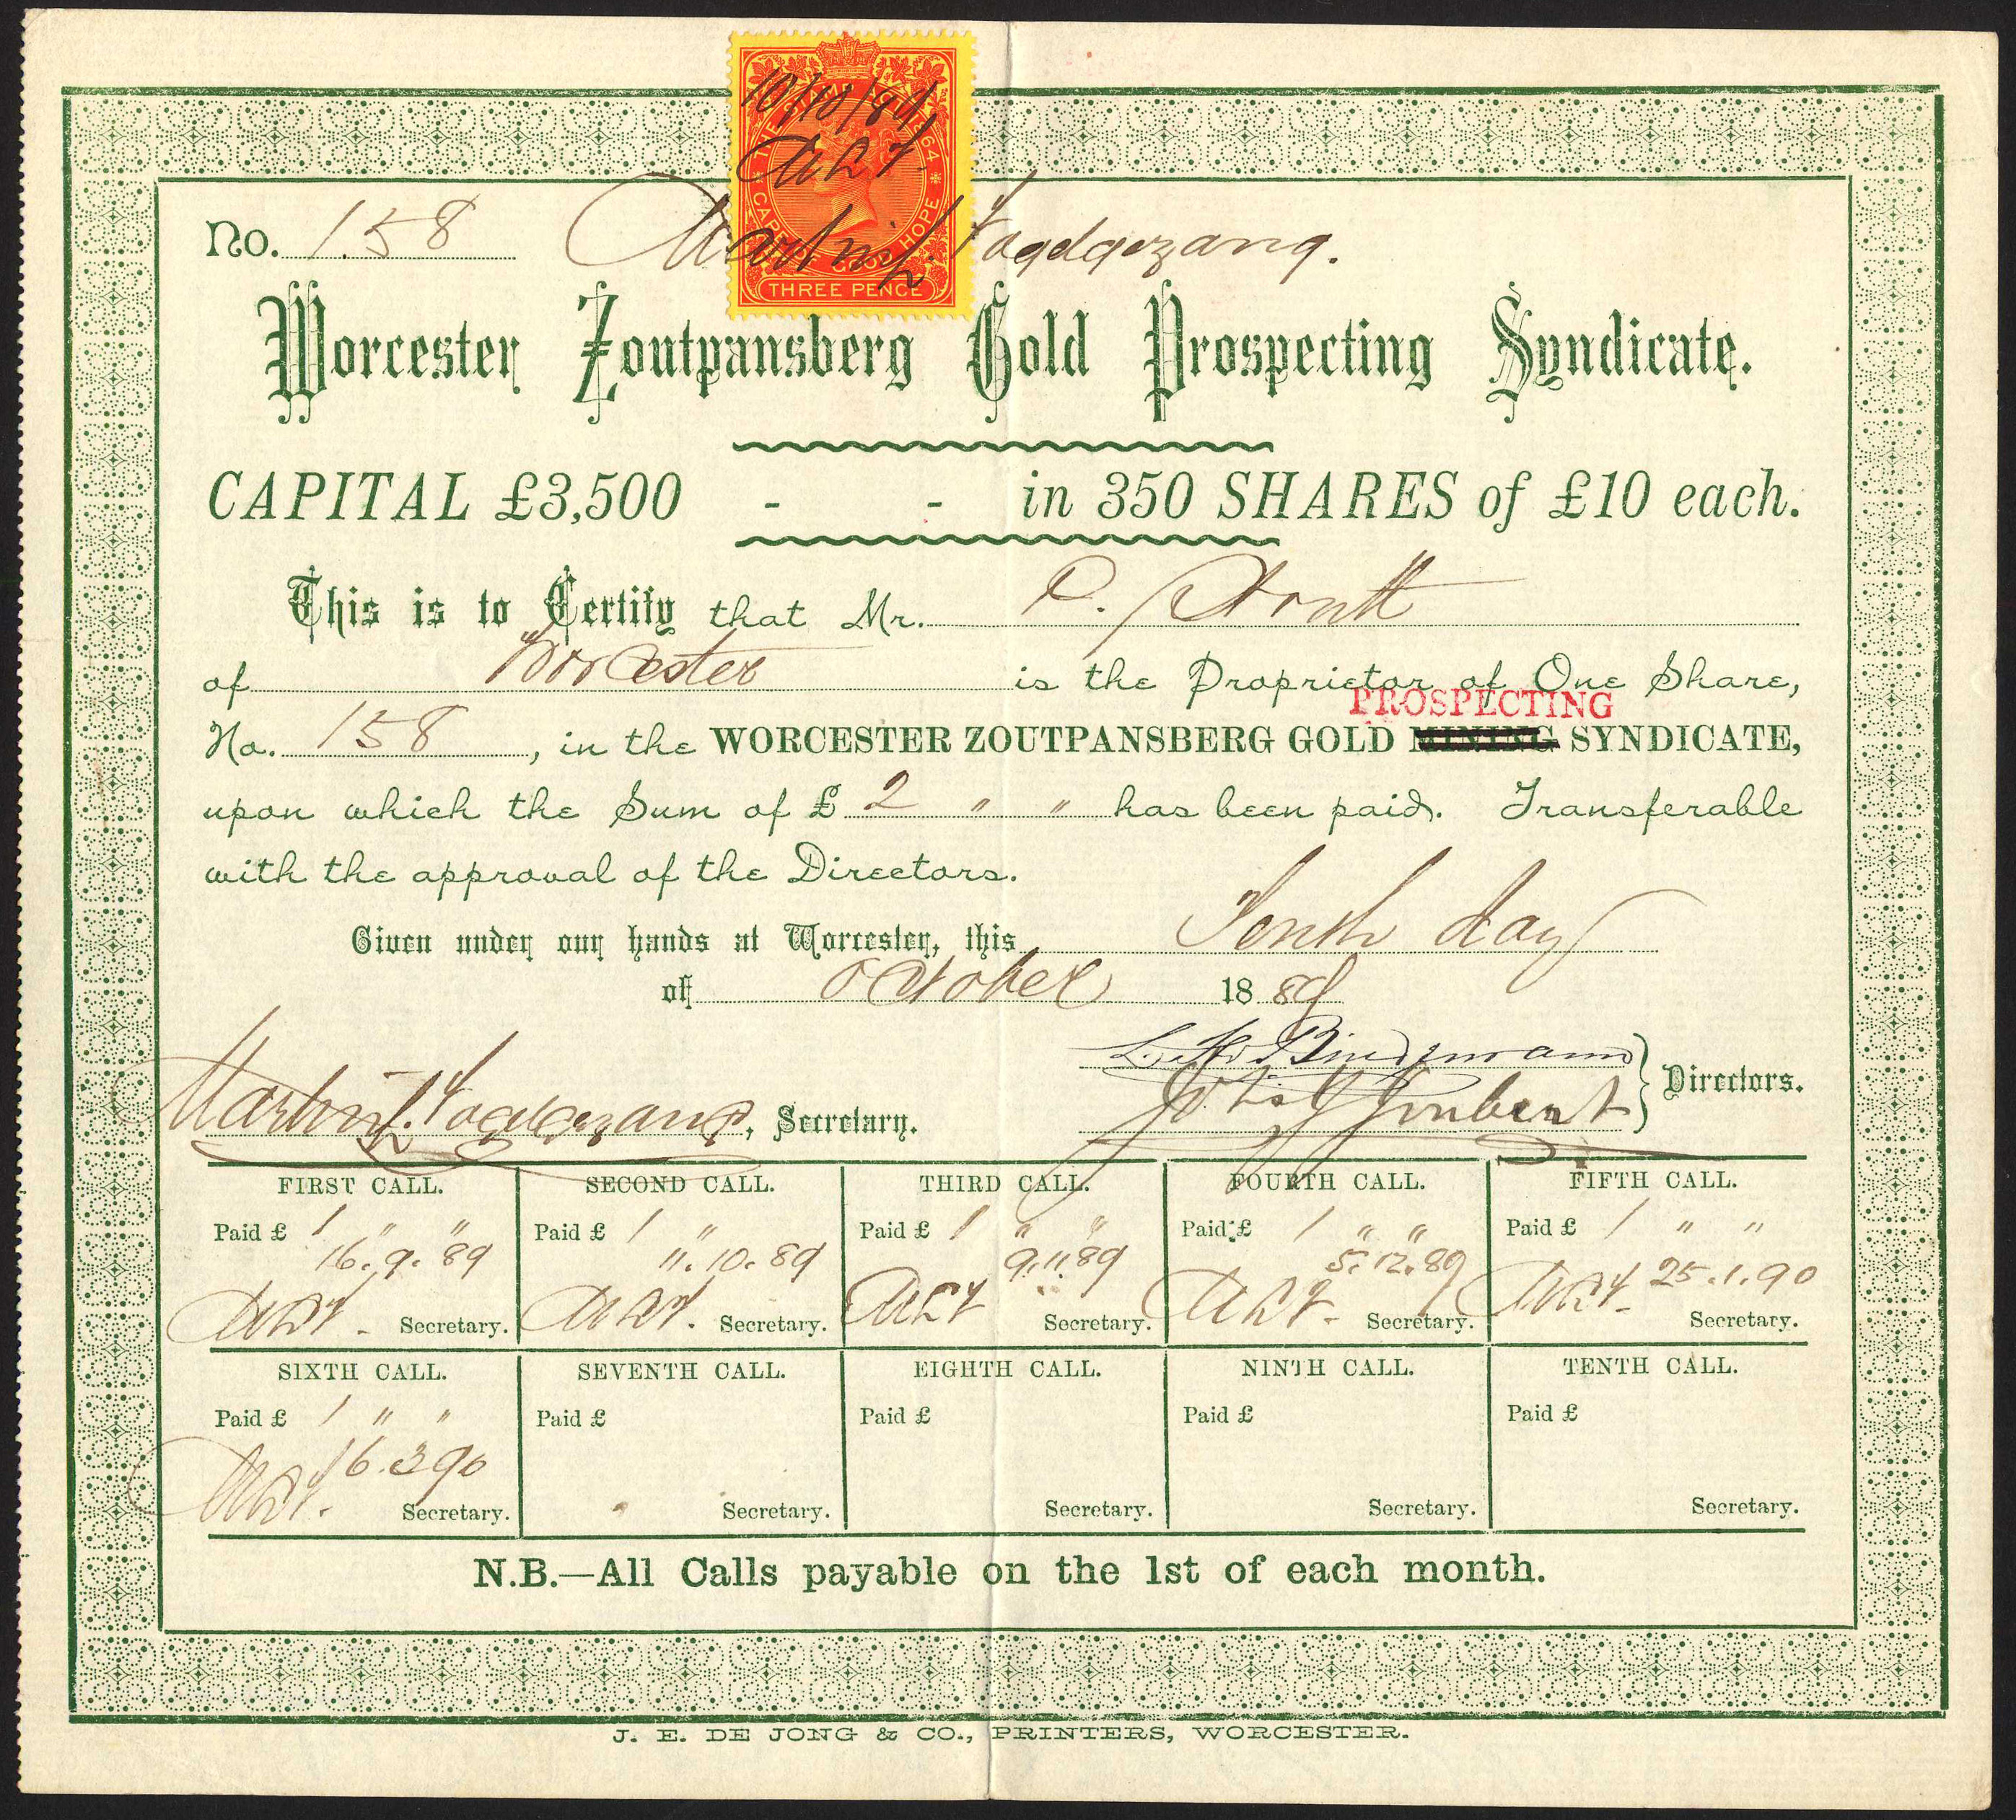 THE STAMP ACT 1864
CAPE OF GOOD HOPE
THREE PENCE
No. 158
Worcester Zoutpansberg Gold Prospecting Syndicate.
CAPITAL £3,500 - - in 350 SHARES of £10 each.
This is to Certify that Mr. P.
of Worcester is the Proprietor of One Share,
PROSPECTING
No. 158, in the WORCESTER ZOUTPANSBERG GOLD MINING SYNDICATE,
upon which the Sum of £ 2 " " has been paid. Transferable
with the approval of the Directors.
Given under our hands at Worcester, this Tenth day
of October 1889
Directors.
Martin, Secretary. Joubert
FIRST CALL. SECOND CALL. THIRD CALL. FOURTH CALL. FIFTH CALL.
Paid £ 1 " " Paid £ 1 " Paid £ 1 " " Paid £ 1 " " Paid £ 1 " "
16.9.89 11.10.89 9.11.89 5.12.89 25.1.90
Secretary. Secretary. Secretary. Secretary. Secretary.
SIXTH CALL. SEVENTH CALL. EIGHTH CALL. NINTH CALL. TENTH CALL.
Paid £ 1 " " Paid £ Paid £ Paid £ Paid £
16.3.90
Secretary. Secretary. Secretary. Secretary. Secretary.
N.B.—All Calls payable on the 1st of each month.
J. E. DE JONG & CO., PRINTERS, WORCESTER.